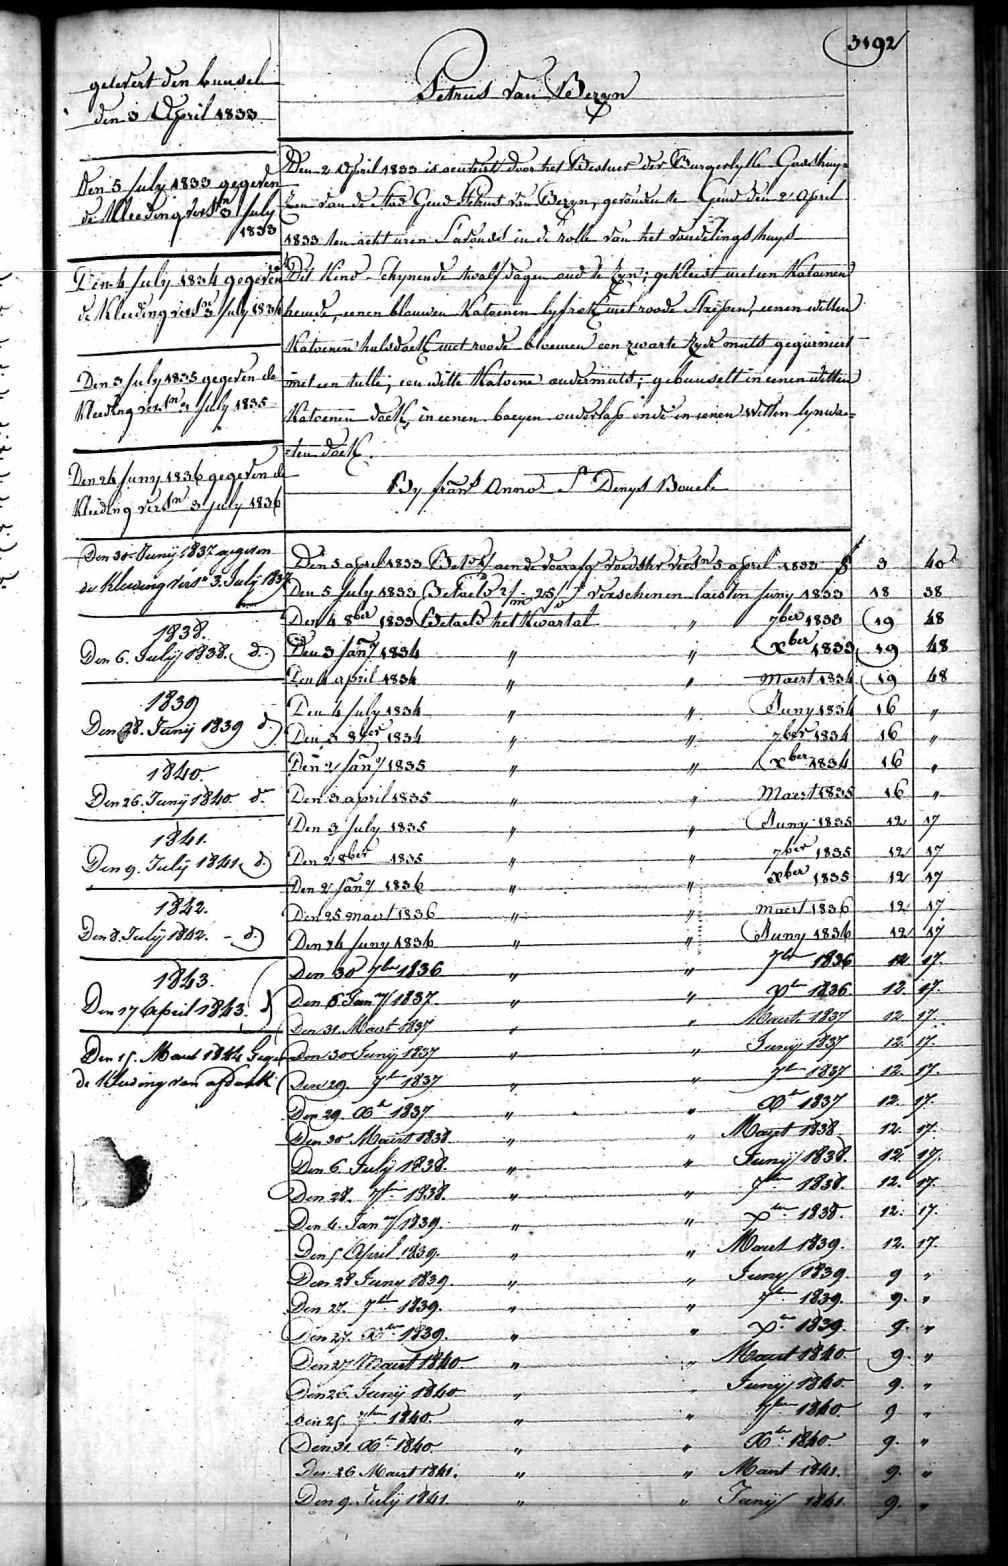 3192
Petrus Van Bezyn
gelevert den bunsel
den 3 April 1833
Den 5 July 1833 gegeven
de Kleeding versn 3 July
1833
Den 4 July 1834 gegeven
de Kleeding versn 3 July 1834
Den 3 July 1835 gegeven de
Kleeding versn 3 July 1835
Den 24 Juny 1836 gegeven de
Kleeding versn 3 July 1836
Den 30 Junij 1837 gegeven
de Kleeding versn 3. July 1837
1838.
Den 6. Julij 1838. d.
1839
Den 28. Junij 1839 d.
1840.
Den 26. Junij 1840. d.
1841.
Den 9. Julij 1841. d.
1842.
Den 8. Julij 1842. - d.
1843.
Den 17 April 1843. d
Den 15. Maert 1844
de Kleeding van
Den 2 April 1833 is door het Bestuer der Burgerlyke Godshuy-
zen van de Stad Gend Petrus van Bezyn, gevonden te Gend den 2 April
1833 ten acht uren s'avonds in de rolle van het vondelingshuys
Dit Kind schynende twalf dagen oud te zyn; gekleed met een Katoenen
hemde, eenen blauwen Katoenen lyfrok met roode streepen, eenen witten
Katoenen halsdoek met roode bloemen een zwarte zyde muts gegarniert
met een tulle; een witte Katoene ondermuts; gebunselt in eenen witten
Katoenen doek, in eenen baeyen onderlap ende in eenen witten lynwa-
ten doek.
By frans Anno St Denys Boucle
Den 5 april 1833 aen de 5 april 1833 3 40
Den 5 July 1833 Betaeld verschenen laesten Juny 1833 18 38
Den 4 8ber 1833 Betaeld het Kwartal " 7ber 1833 19 48
Den 3 Jany 1834 " " Xber 1833 19 48
Den 4 april 1834 " " Maert 1834 19 48
Den 4 July 1834 " " Juny 1834 16 "
Den 3 8ber 1834 " " 7ber 1834 16 "
Den 2 Jany 1835 " " Xber 1834 16 "
Den 3 april 1835 " " Maert 1835 16 "
Den 3 July 1835 " " Juny 1835 12 17
Den 2 8ber 1835 " " 7ber 1835 12 17
Den 2 Jany 1836 " " Xber 1835 12 17
Den 25 maert 1836 " " maert 1836 12 17
Den 24 Juny 1836 " " Juny 1836 12 17
Den 30 7ber 1836 " " 7ber 1836 12 17.
Den 6. Jany 1837. " " Xbr 1836 12. 17.
Den 31. Maert 1837 " " Maert 1837 12 17.
Den 30 Junij 1837 " " Junij 1837 12. 17.
Den 29 7br 1837 " " 7br 1837 12. 17.
Den 29 Xbr 1837 " " Xbr 1837 12. 17.
Den 30 Maert 1838. " " Maert 1838. 12. 17.
Den 6. Julij 1838. " " Junij 1838. 12. 17.
Den 28. 7br 1838. " " 7br 1838. 12. 17.
Den 4. Jany 1839. " " Xbr 1838. 12. 17.
Den 5 April 1839. " " Maert 1839. 12. 17.
Den 28 Juny 1839. " " Juny 1839. 9 "
Den 27. 7br 1839. " " 7br 1839. 9. "
Den 27. Xbr 1839. " " Xbr 1839. 9. "
Den 27 Maert 1840 " " Maert 1840 9. "
Den 26. Junij 1840 " " Junij 1840. 9. "
Den 25 7br 1840. " " 7br 1840. 9 "
Den 31 Xbr 1840. " " Xbr 1840. 9. "
Den 26 Maert 1841. " " Maert 1841. 9. "
Den 9. Julij 1841. " " Junij 1841. 9. "